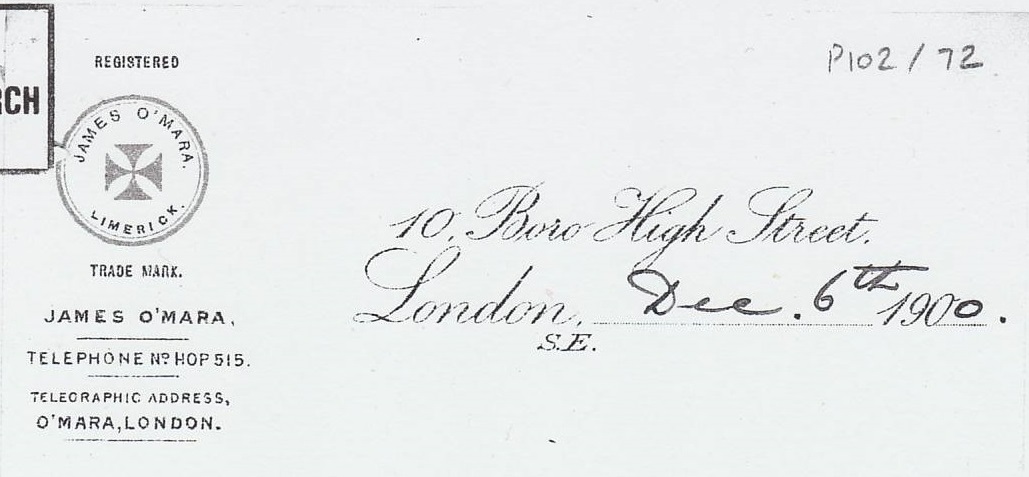 P102/72
RCH
REGISTERED
JAMES O'MARA.
LIMERICK.
TRADE MARK.
JAMES O'MARA,
TELEPHONE Nº HOP 515.
TELEGRAPHIC ADDRESS,
O'MARA, LONDON.
10, Boro High Street.
London, Dec. 6th 1900.
S.E.